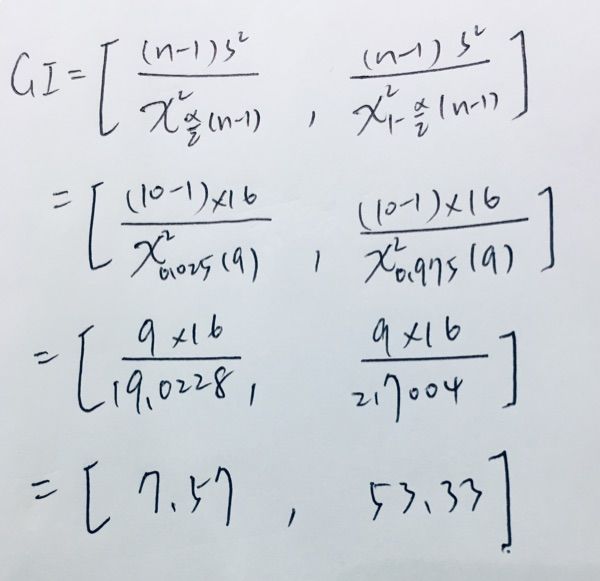 CI = [ (n-1)s² / χ²_{α/2}(n-1) , (n-1)s² / χ²_{1-α/2}(n-1) ]
= [ (10-1)×16 / χ²_{0.025}(9) , (10-1)×16 / χ²_{0.975}(9) ]
= [ 9×16 / 19.0228 , 9×16 / 2.7004 ]
= [ 7.57 , 53.33 ]